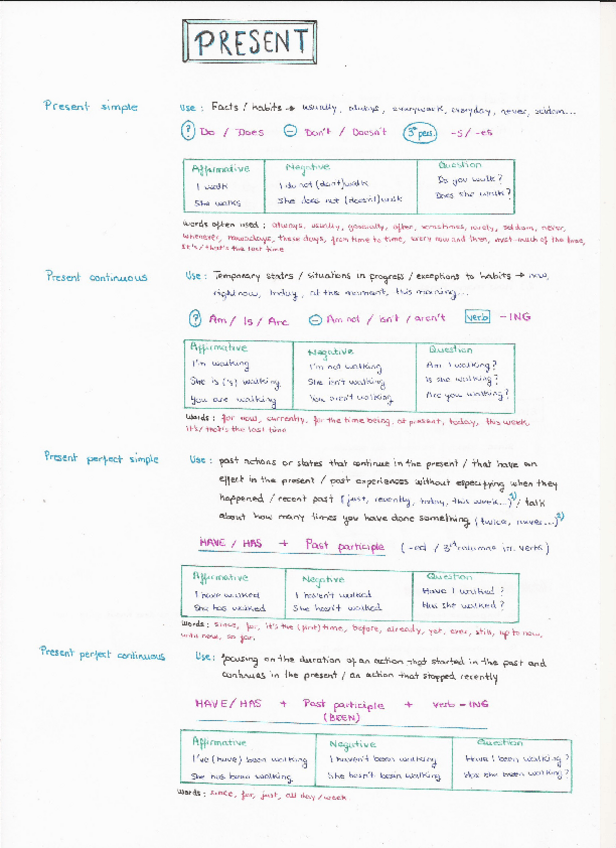 PRESENT
Present simple
Use: Facts / habits → usually, always, everyweek, everyday, never, seldom...
? Do / Does - Don't / Doesn't 3rd pers. -s / -es
Affirmative Negative Question
I walk I do not (don't) walk Do you walk?
She walks She does not (doesn't) walk Does she walk?
Words often used: always, usually, generally, often, sometimes, rarely, seldom, never,
whenever, nowadays, these days, from time to time, every now and then, most/much of the time,
It's / that's the last time
Present continuous
Use: Temporary states / situations in progress / exceptions to habits → now,
right now, today, at the moment, this morning...
? Am / Is / Are - Am not / isn't / aren't verb -ING
Affirmative Negative Question
I'm walking I'm not walking Am I walking?
She is ('s) walking She isn't walking Is she walking?
You are walking You aren't walking Are you walking?
Words: for now, currently, for the time being, at present, today, this week,
it's/that's the last time
Present perfect simple
Use: past actions or states that continue in the present / that have an
effect in the present / past experiences without especifying when they
happened / recent past (just, recently, today, this week...) / talk
about how many times you have done something (twice, ...)
HAVE / HAS + Past participle (-ed / 3rd column irr. verbs)
Affirmative Negative Question
I have walked I haven't walked Have I walked?
She has walked She hasn't walked Has she walked?
Words: since, for, it's the (first) time, before, already, yet, ever, still, up to now,
until now, so far.
Present perfect continuous
Use: focusing on the duration of an action that started in the past and
continues in the present / an action that stopped recently
HAVE / HAS + Past participle + verb -ING
(BEEN)
Affirmative Negative Question
I've (have) been walking I haven't been walking Have I been walking?
She has been walking She hasn't been walking Has she been walking?
Words: since, for, just, all day/week